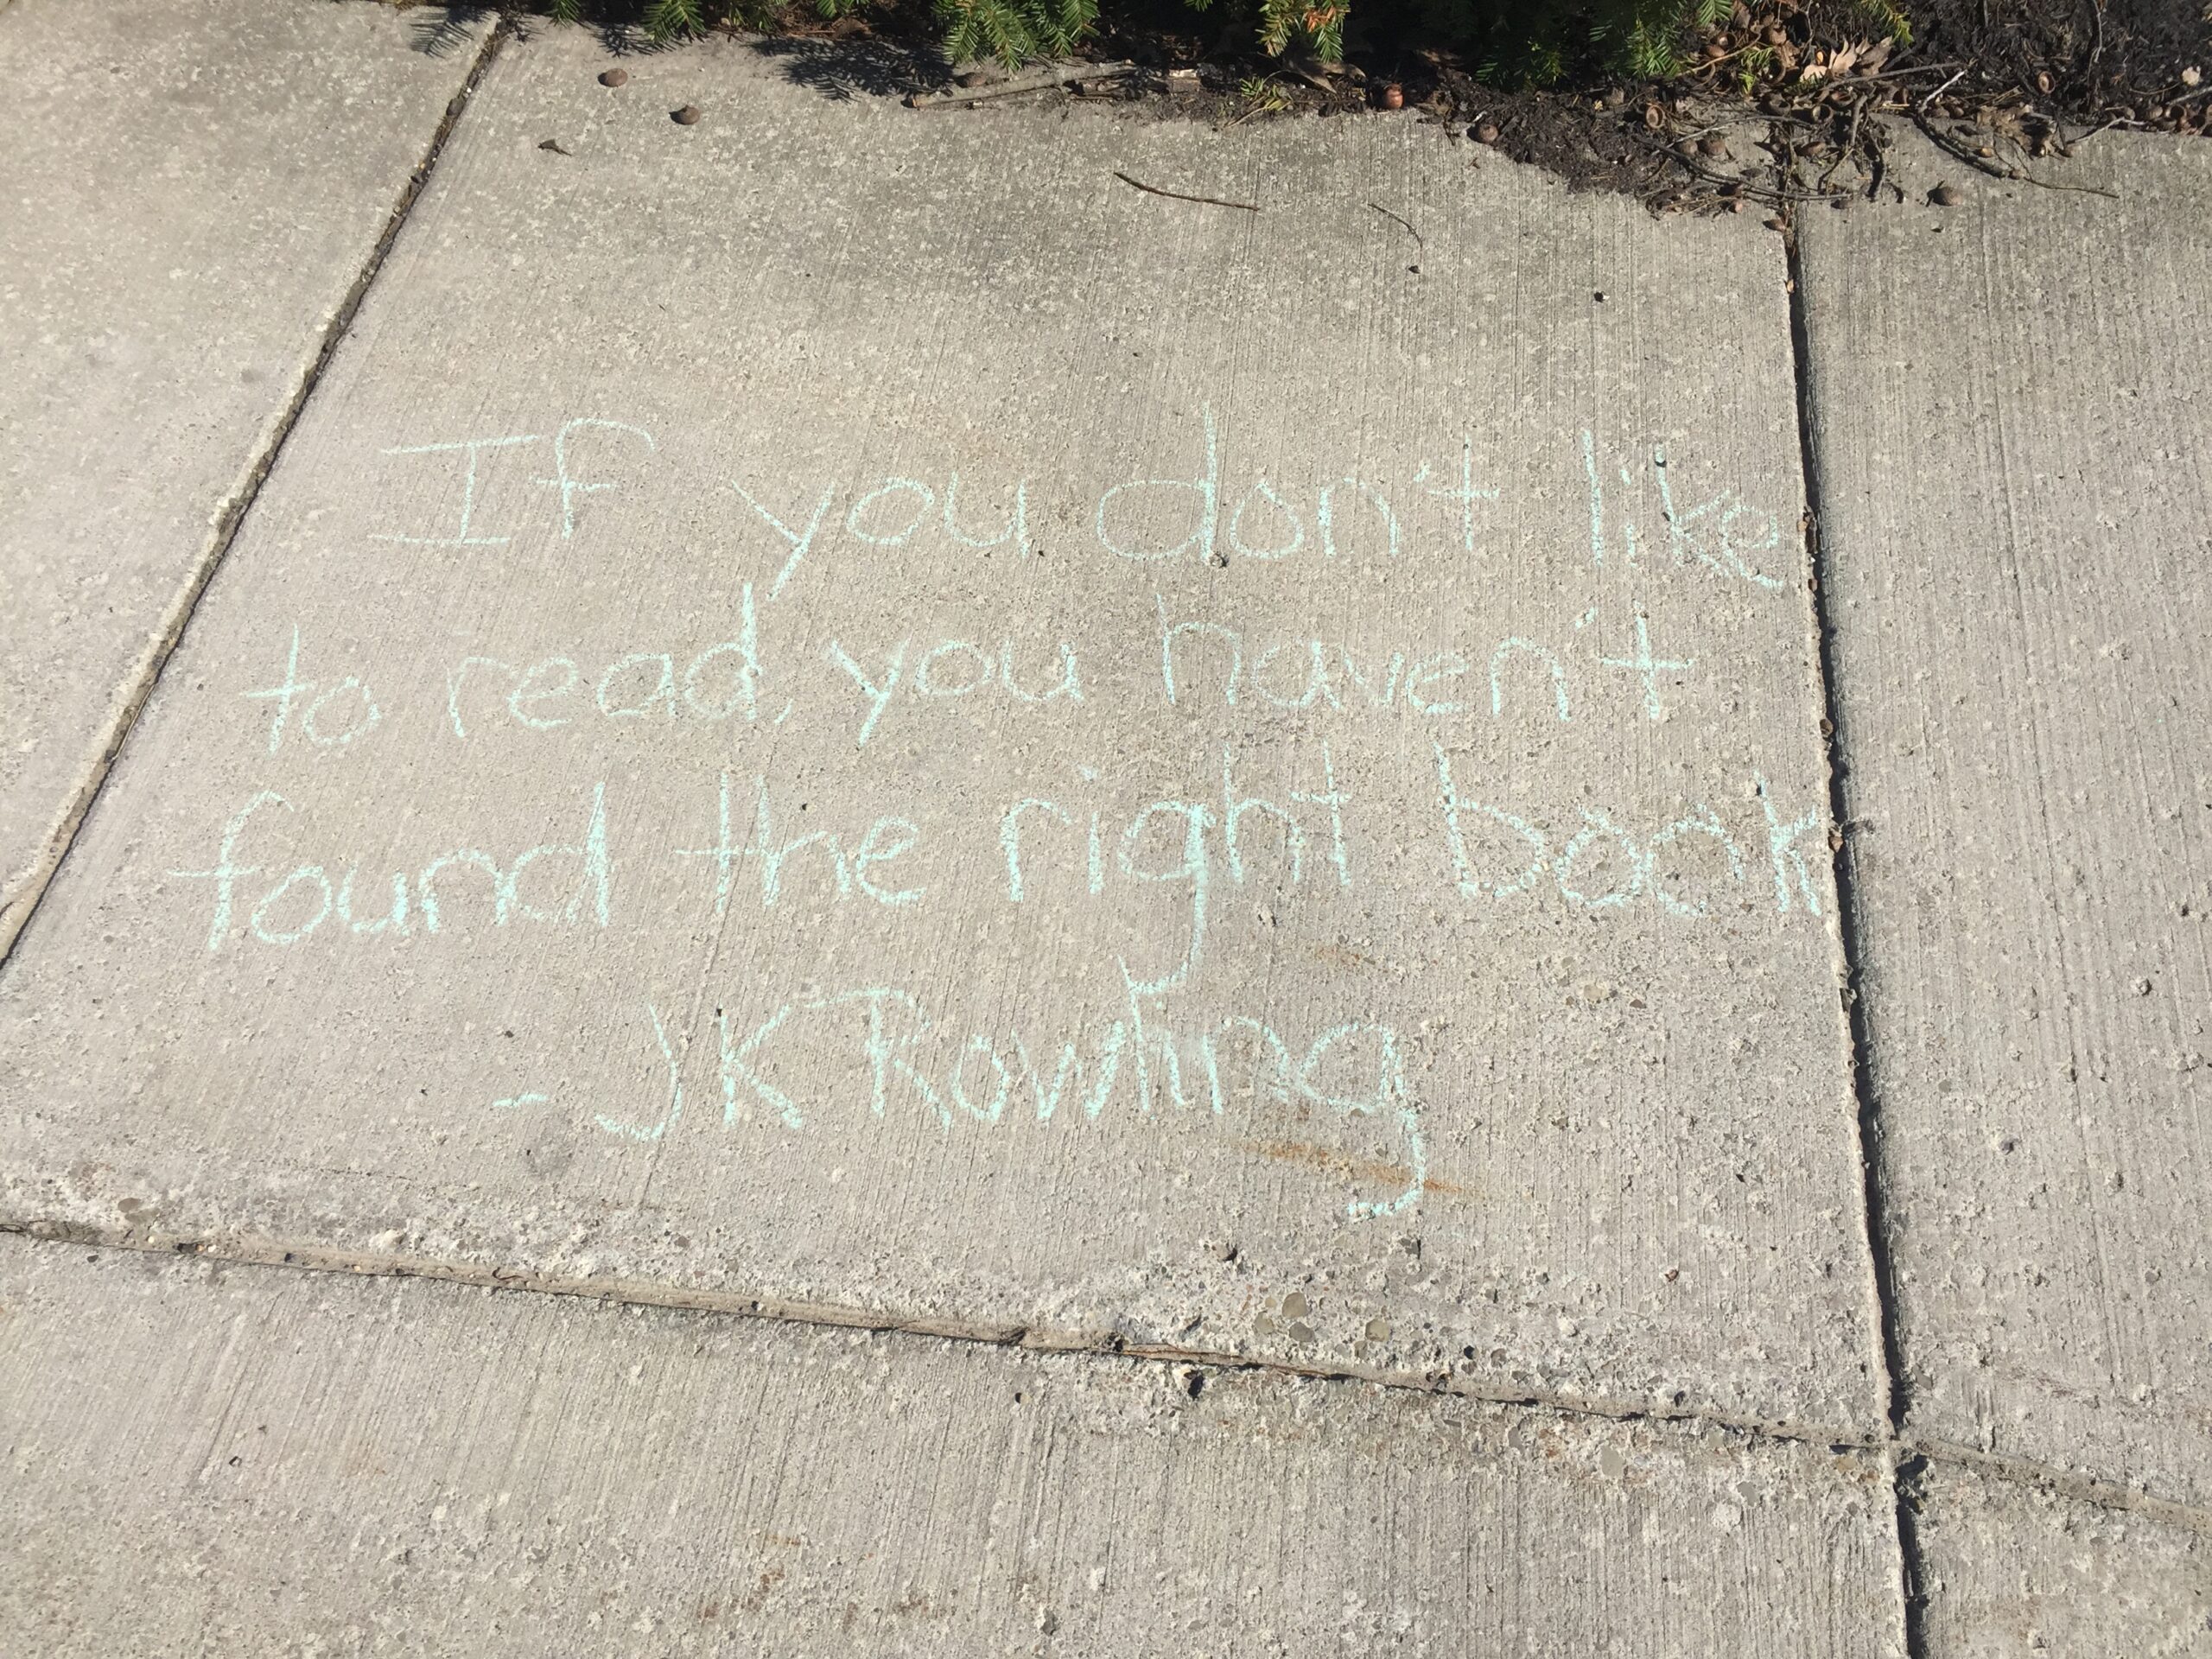 If you don't like
to read, you haven't
found the right book
- JK Rowling